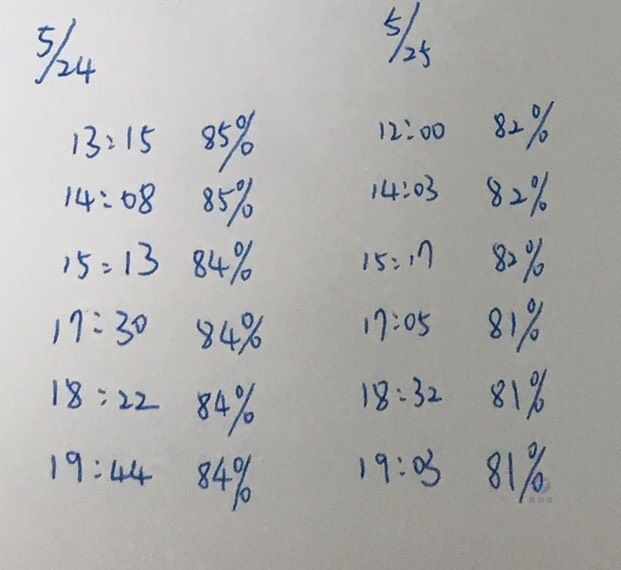 5/24 5/25
13:15 85% 12:00 82%
14:08 85% 14:03 82%
15:13 84% 15:17 82%
17:30 84% 17:05 81%
18:22 84% 18:32 81%
19:44 84% 19:03 81%